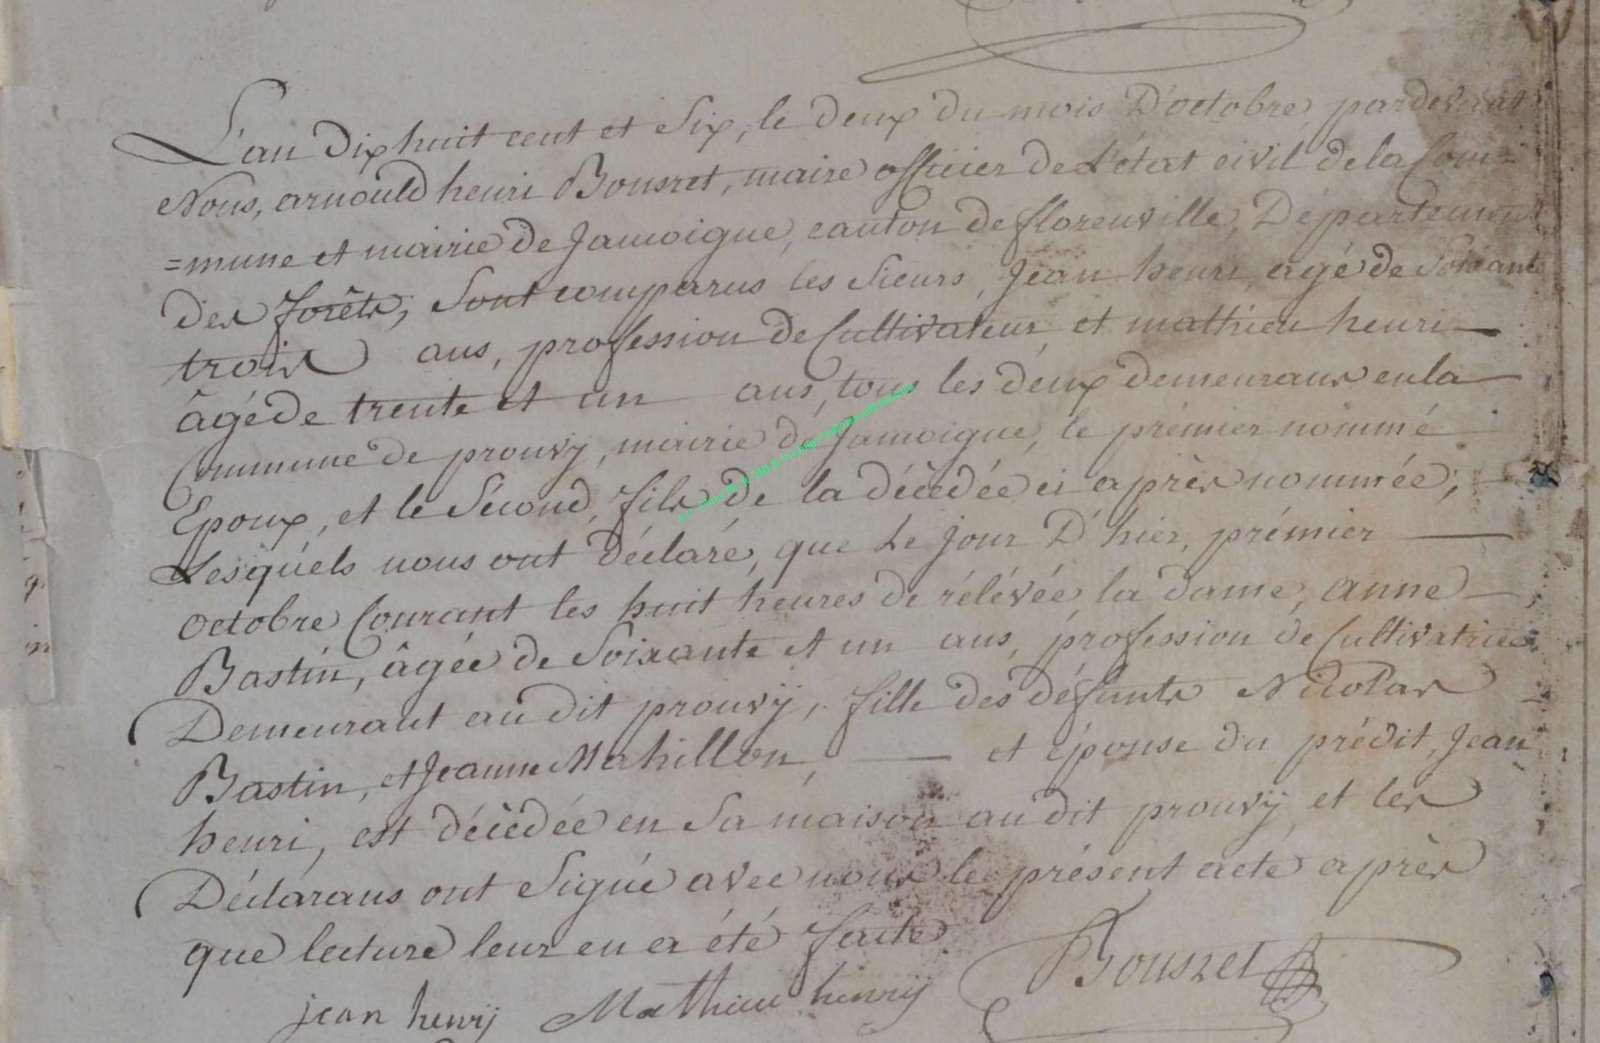 L'an dix huit cent et Six, le deux du mois D'octobre, pardevant
Nous, arnould henri Bousret, maire officier de L'état civil de la Com=
=mune et mairie de Jamoigne, canton de florenville, Département
des forêts, Sont comparus les Sieurs, Jean henri, agé de Soixante
trois ans, profession de Cultivateur, et mathieu henri
âgé de trente et un ans, tous les deux demeurans en la
Commune de prouvy, mairie de Jamoigne, le prémier nommé
Epoux, et le Sécond, fils de la décèdée ci après nommée,
Lesquéls nous ont Déclaré, que Le jour D'hier, prémier
octobre Courant les huit heures de rélévée, la dame, anne
Bastin, âgée de Soixante et un ans, profession de Cultivatrice
Demeurant au dit prouvÿ, fille des défunts Nicolas
Bastin, et Jeanne Mahillon, et épouse du prédit, Jean
henri, est décèdée en Sa maison au dit prouvÿ, et les
Déclarans ont Signé avec nous le présent acte après
que lecture leur en a été faite
jean henrÿ Mathieu henrÿ Bousret